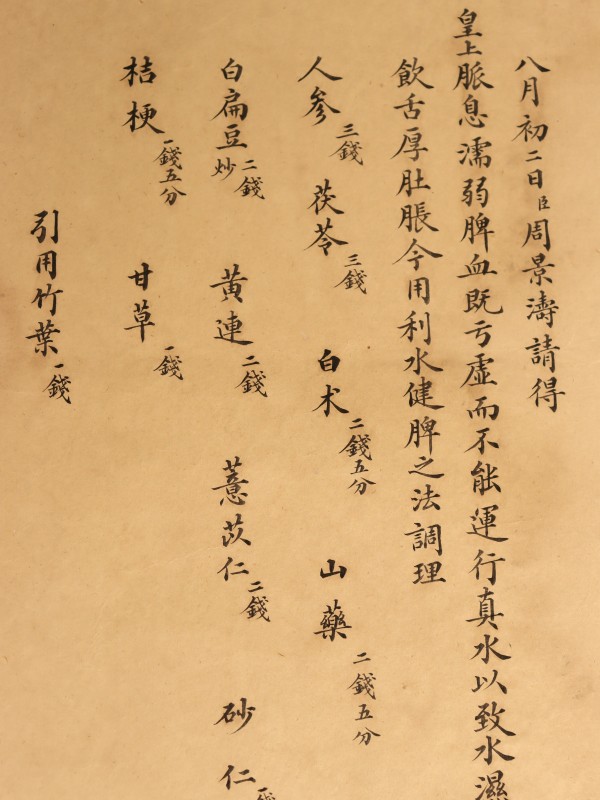 八月初二日臣周景濤請得
皇上脈息濡弱脾血既亏虛而不能運行真水以致水濕
飲舌厚肚脹今用利水健脾之法調理
人參三錢 茯苓三錢 白术二錢五分 山藥二錢五分
白扁豆炒二錢 黃連二錢 薏苡仁二錢 砂仁
桔梗一錢五分 甘草一錢
引用竹葉一錢